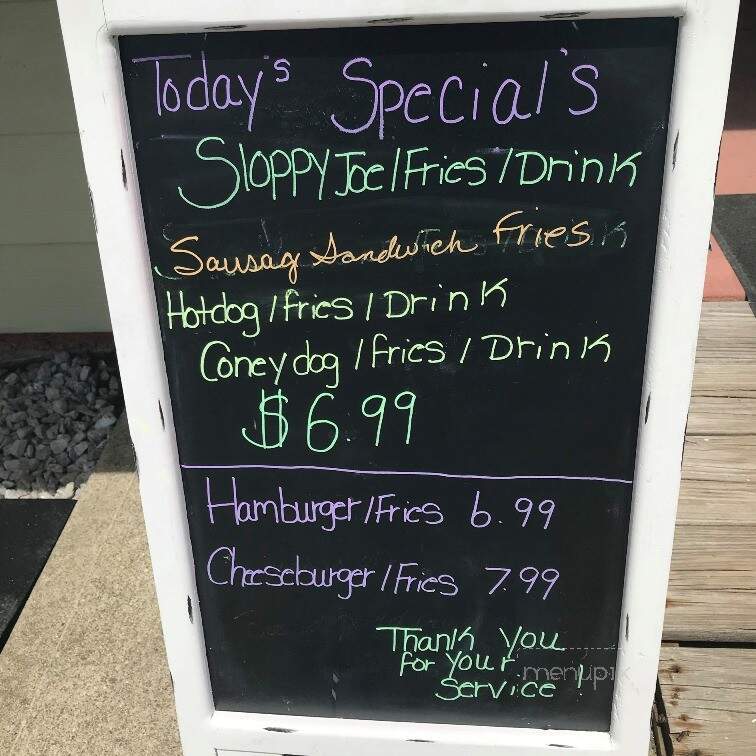 Today's Special's
Sloppy Joe/Fries/Drink
Sausag Sandwich Fries
Hotdog/fries/Drink
Coney dog/fries/Drink
$6.99
Hamburger/Fries 6.99
Cheeseburger/Fries 7.99
Thank You
For Your
Service !
menupix